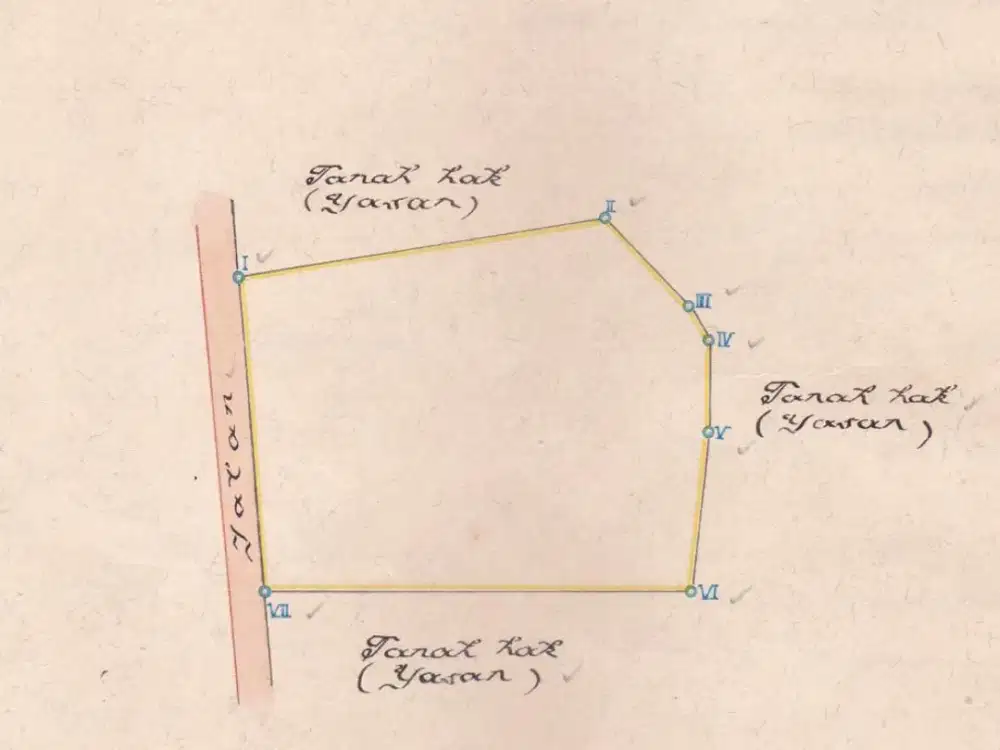 Tanah hak
(Yasan)
II
I
III
IV
Tanah hak
(Yasan)
V
Jalan
VI
VII
Tanah hak
(Yasan)